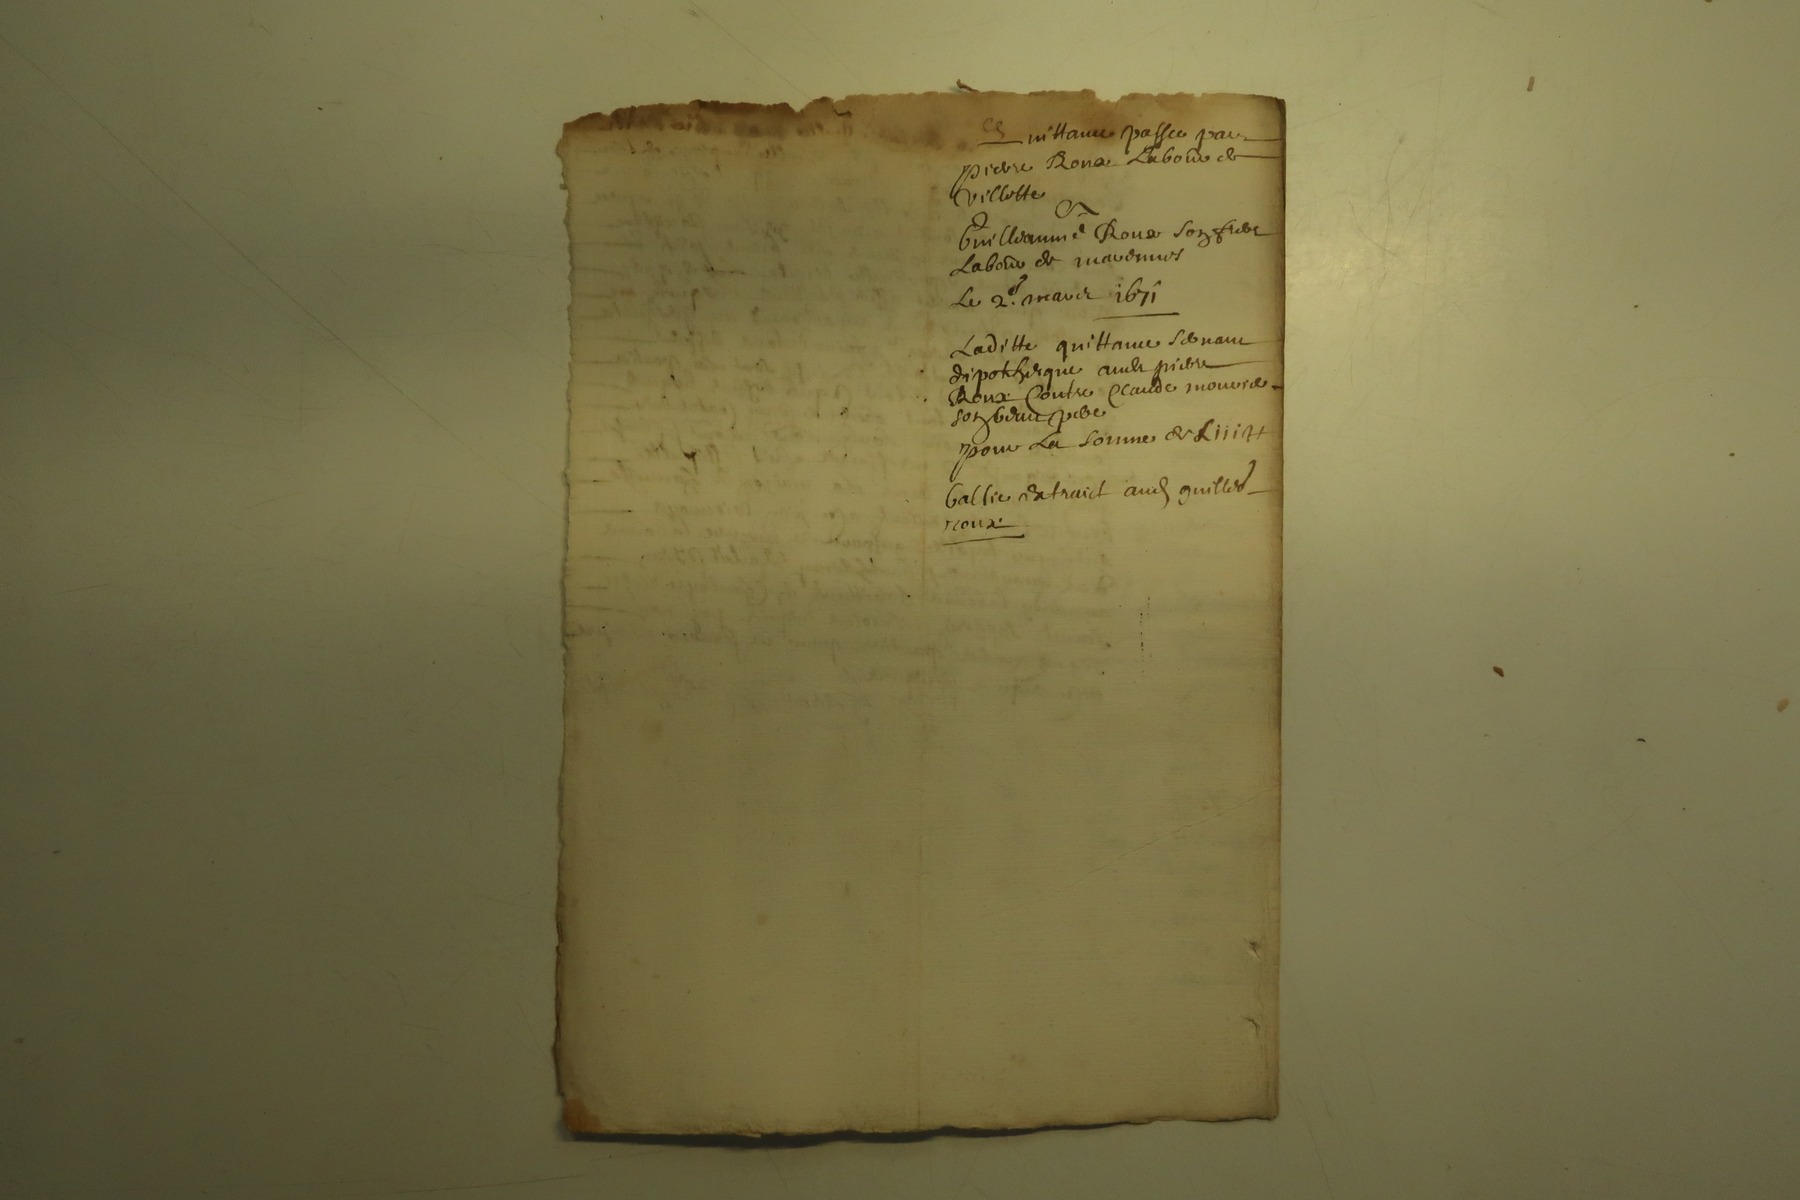 Quittance passée par
pierre Roux Labour de
villette
A
Guilleaume Roux son frere
Labour de marennes
Le 2e. mars 1671
Laditte quittance servant
dipothesque audt pierre
Roux Contre Claude
son beau pere
pour La somme de Liiii tt
baillie extraict aud guille
roux